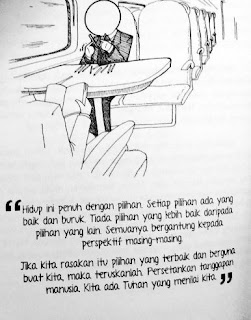 “Hidup ini penuh dengan pilihan. Setiap pilihan ada yang
baik dan buruk. Tiada pilihan yang lebih baik daripada
pilihan yang lain. Semuanya bergantung kepada
perspektif masing-masing.
Jika kita rasakan itu pilihan yang terbaik dan berguna
buat kita, maka teruskanlah. Persetankan tanggapan
manusia. Kita ada Tuhan yang menilai kita.”